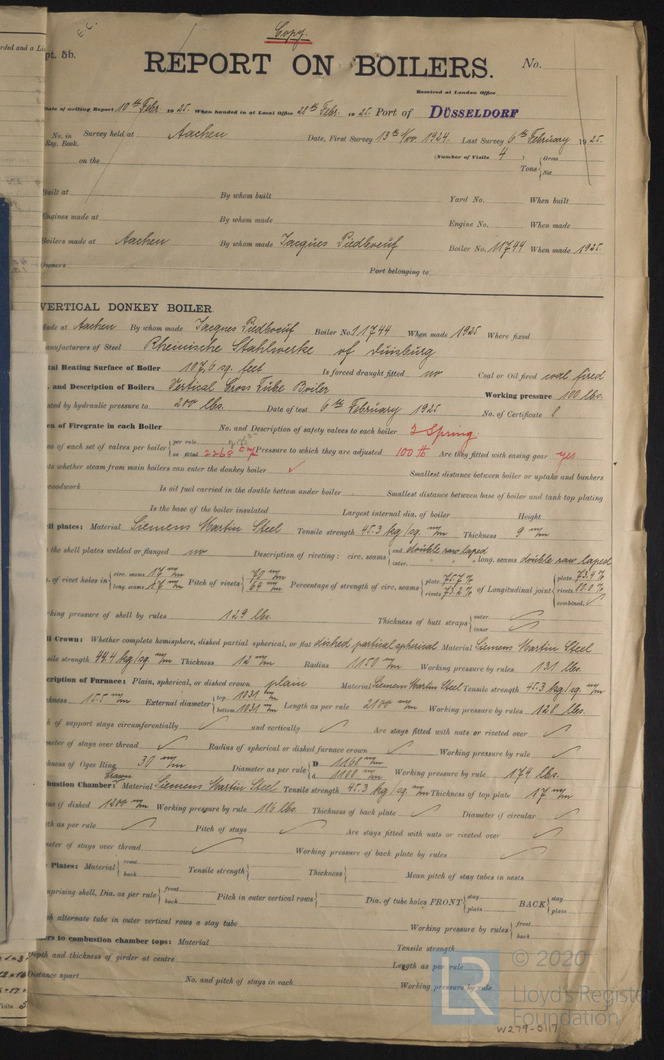 Copy
rded and a Li
pt. 5b.
REPORT ON BOILERS.
No.
Received at London Office
Date of writing Report 10th Febr. 1925. When handed in at Local Office 28th Febr. 1925. Port of DÜSSELDORF
No. in Reg. Book. Survey held at Aachen Date, First Survey 13th Nov. 1924. Last Survey 6th February 1925.
on the (Number of Visits 4) Tons { Gross Net
Built at By whom built Yard No. When built
Engines made at By whom made Engine No. When made
Boilers made at Aachen By whom made Jacques Piedboeuf Boiler No. 11744 When made 1925.
Owners Port belonging to
VERTICAL DONKEY BOILER
Made at Aachen By whom made Jacques Piedboeuf Boiler No. 11744 When made 1925 Where fixed
anufacturers of Steel Rheinische Stahlwerke of Duisburg
tal Heating Surface of Boiler 107,6 sq. feet Is forced draught fitted no Coal or Oil fired coal fired
. and Description of Boilers Vertical Cross Tube Boiler Working pressure 100 lbs.
sted by hydraulic pressure to 200 lbs. Date of test 6th February 1925 No. of Certificate
ea of Firegrate in each Boiler No. and Description of safety valves to each boiler 2 Spring
ea of each set of valves per boiler { per rule as fitted 2268 Pressure to which they are adjusted 100 lb Are they fitted with easing gear yes
te whether steam from main boilers can enter the donkey boiler ✓ Smallest distance between boiler or uptake and bunkers
woodwork Is oil fuel carried in the double bottom under boiler Smallest distance between base of boiler and tank top plating
Is the base of the boiler insulated Largest internal dia. of boiler Height
ll plates: Material Siemens Martin Steel Tensile strength 45.3 kg/sq. mm Thickness 9 mm
the shell plates welded or flanged no Description of riveting: circ. seams { end double row laped inter. " long. seams double row laped
. of rivet holes in { circ. seams 17 mm long. seams 17 mm Pitch of rivets { 70 mm 64 mm Percentage of strength of circ. seams { plate 75.7% rivets 73.2% of Longitudinal joint { plate 73.4% rivets 80.0% combined ✓
king pressure of shell by rules 129 lbs. Thickness of butt straps { outer ✓ inner ✓
ll Crown: Whether complete hemisphere, dished partial spherical, or flat dished, partial spherical Material Siemens Martin Steel
sile strength 44.4 kg/sq. mm Thickness 12 mm Radius 1150 mm Working pressure by rules 131 lbs.
cription of Furnace: Plain, spherical, or dished crown plain Material Siemens Martin Steel Tensile strength 45.3 kg/sq. mm
ckness 15.5 mm External diameter { top 1031 mm bottom 1031 mm Length as per rule 2100 mm Working pressure by rules 128 lbs.
ch of support stays circumferentially ✓ and vertically ✓ Are stays fitted with nuts or riveted over ✓
meter of stays over thread ✓ Radius of spherical or dished furnace crown ✓ Working pressure by rule ✓
ckness of Ogee Ring 30 mm Diameter as per rule { D 1168 mm d 1100 mm Working pressure by rule 174 lbs.
bustion Chamber: Material Siemens Martin Steel Tensile strength 45.3 kg/sq. mm Thickness of top plate 17 mm
us if dished 1300 mm Working pressure by rule 116 lbs. Thickness of back plate ✓ Diameter if circular ✓
th as per rule ✓ Pitch of stays ✓ Are stays fitted with nuts or riveted over ✓
meter of stays over thread ✓ Working pressure of back plate by rules ✓
Plates: Material { front back Tensile strength { Thickness { Mean pitch of stay tubes in nests
mprising shell, Dia. as per rule { front back Pitch in outer vertical rows { Dia. of tube holes FRONT { stay plain BACK { stay plain
ch alternate tube in outer vertical rows a stay tube Working pressure by rules { front back
ers to combustion chamber tops: Material Tensile strength
Depth and thickness of girder at centre Length as per rule
Distance apart No. and pitch of stays in each Working pressure by rule
LR
© 2020
Lloyd's Register
Foundation
W279-0117